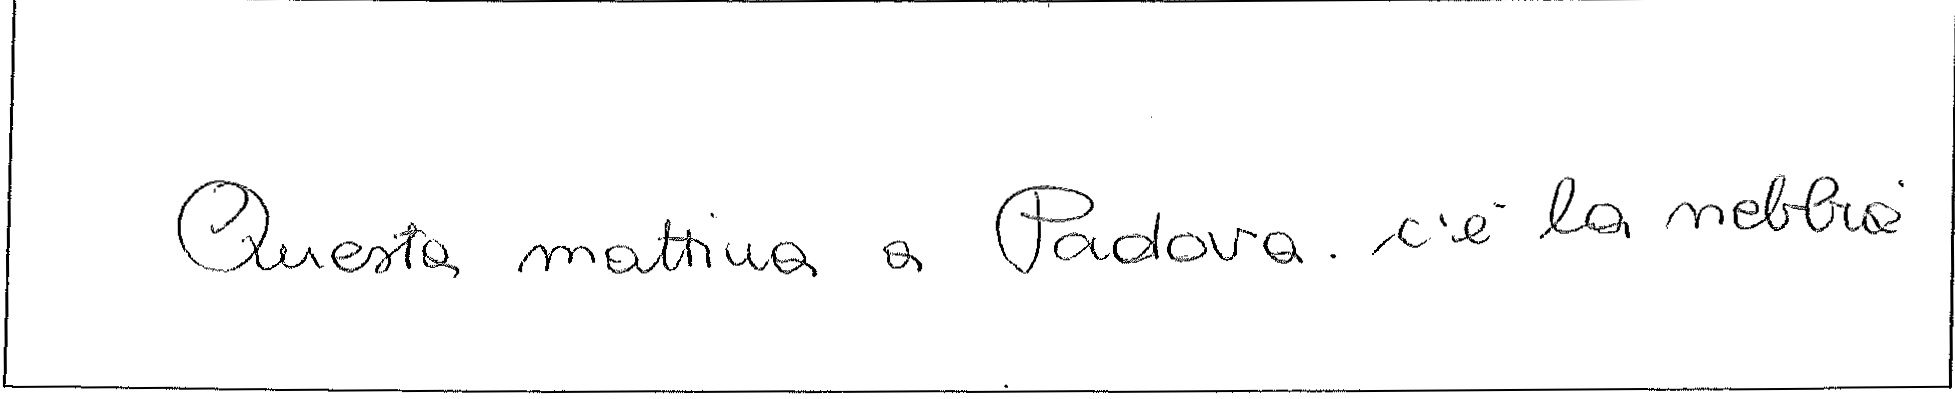 Questa mattina a Padova. c'è la nebbia